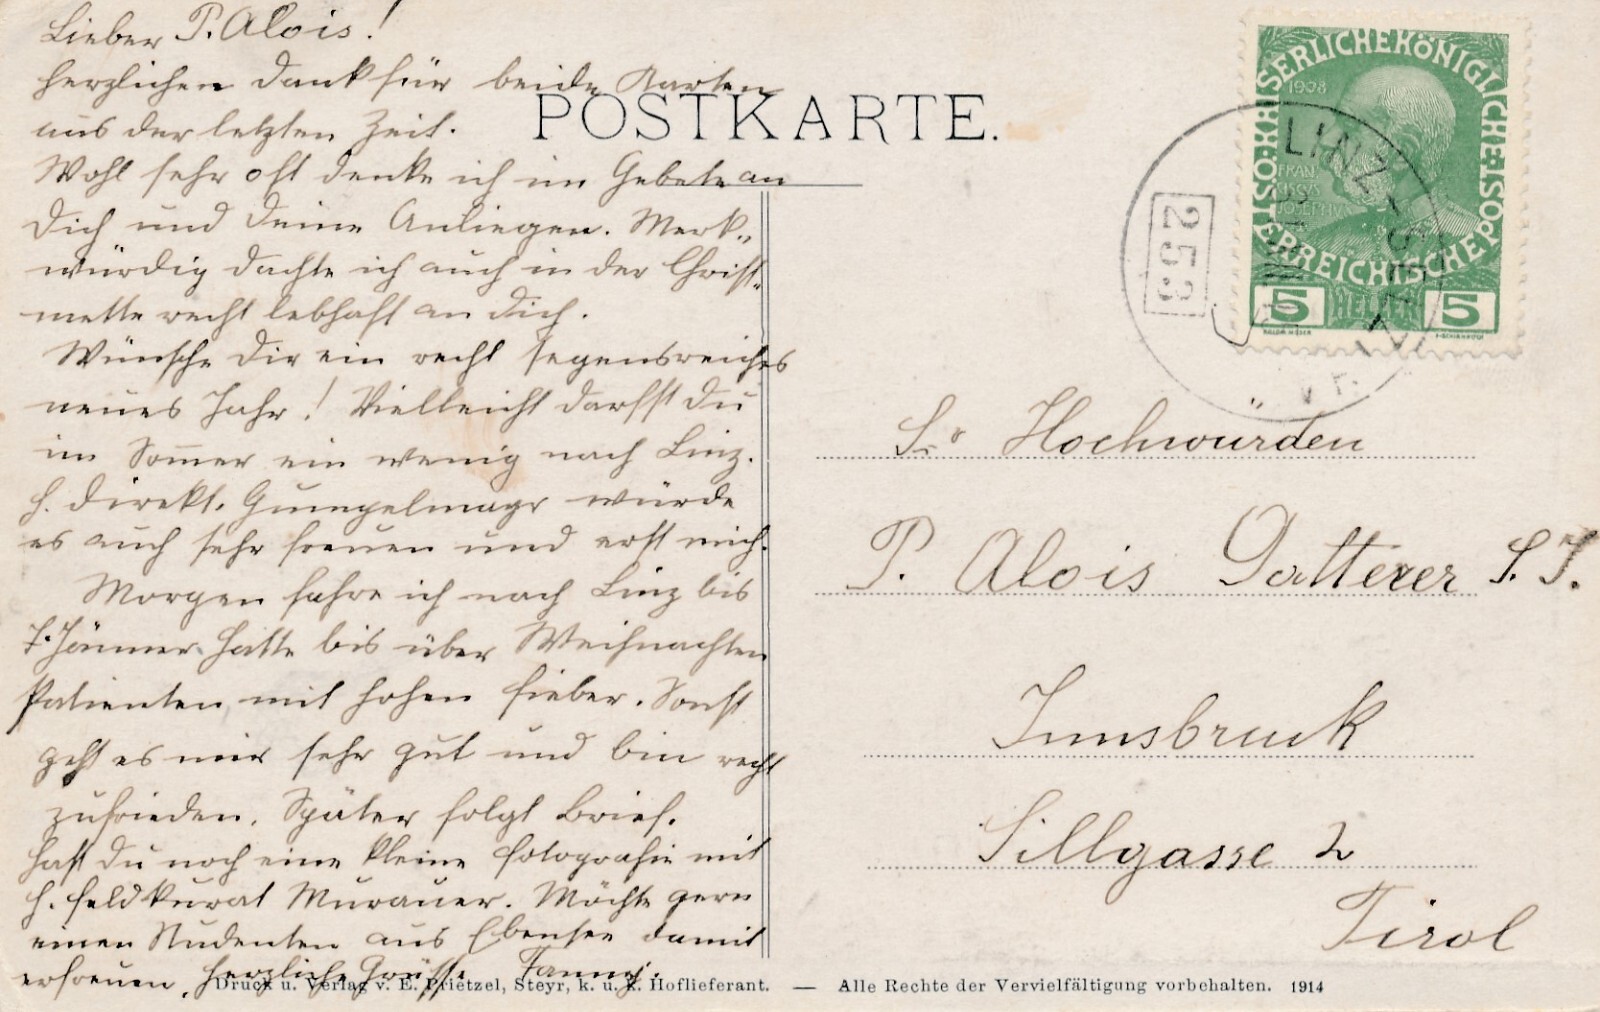 Lieber P. Alois!
herzlichen Dank für beide Karten
aus der letzten Zeit.
Wohl sehr oft denke ich im Gebete an
Dich und deine Anliegen. Merk-
würdig dachte ich auch in der Christ-
mette recht lebhaft an Dich.
Wünsche Dir ein recht segensreiches
neues Jahr! Vielleicht darfst Du
im Sommer ein wenig nach Linz.
H. Direkt. Gumpelmayr würde
es auch sehr freuen und erst mich.
Morgen fahre ich nach Linz bis
7. Jänner. Hatte bis über Weihnachten
Patienten mit hohen Fieber. Sonst
geht es mir sehr gut und bin recht
zufrieden. Später folgt Brief.
Hast Du noch eine kleine Fotografie mit
H. Feldkurat Murauer. Möchte gern
einen Studenten aus Ebensee damit
erfreuen. Herzliche Grüsse Fanny.
POSTKARTE.
KAISERLICHE KÖNIGLICHE ÖSTERREICHISCHE POST
1908
FRANCISCVS JOSEPHVS I
5 HELLER 5
LINZ
253
Sr Hochwürden
P. Alois Gatterer S. J.
Innsbruck
Sillgasse 2
Tirol
Druck u. Verlag v. E. Prietzel, Steyr, k. u. k. Hoflieferant. — Alle Rechte der Vervielfältigung vorbehalten. 1914